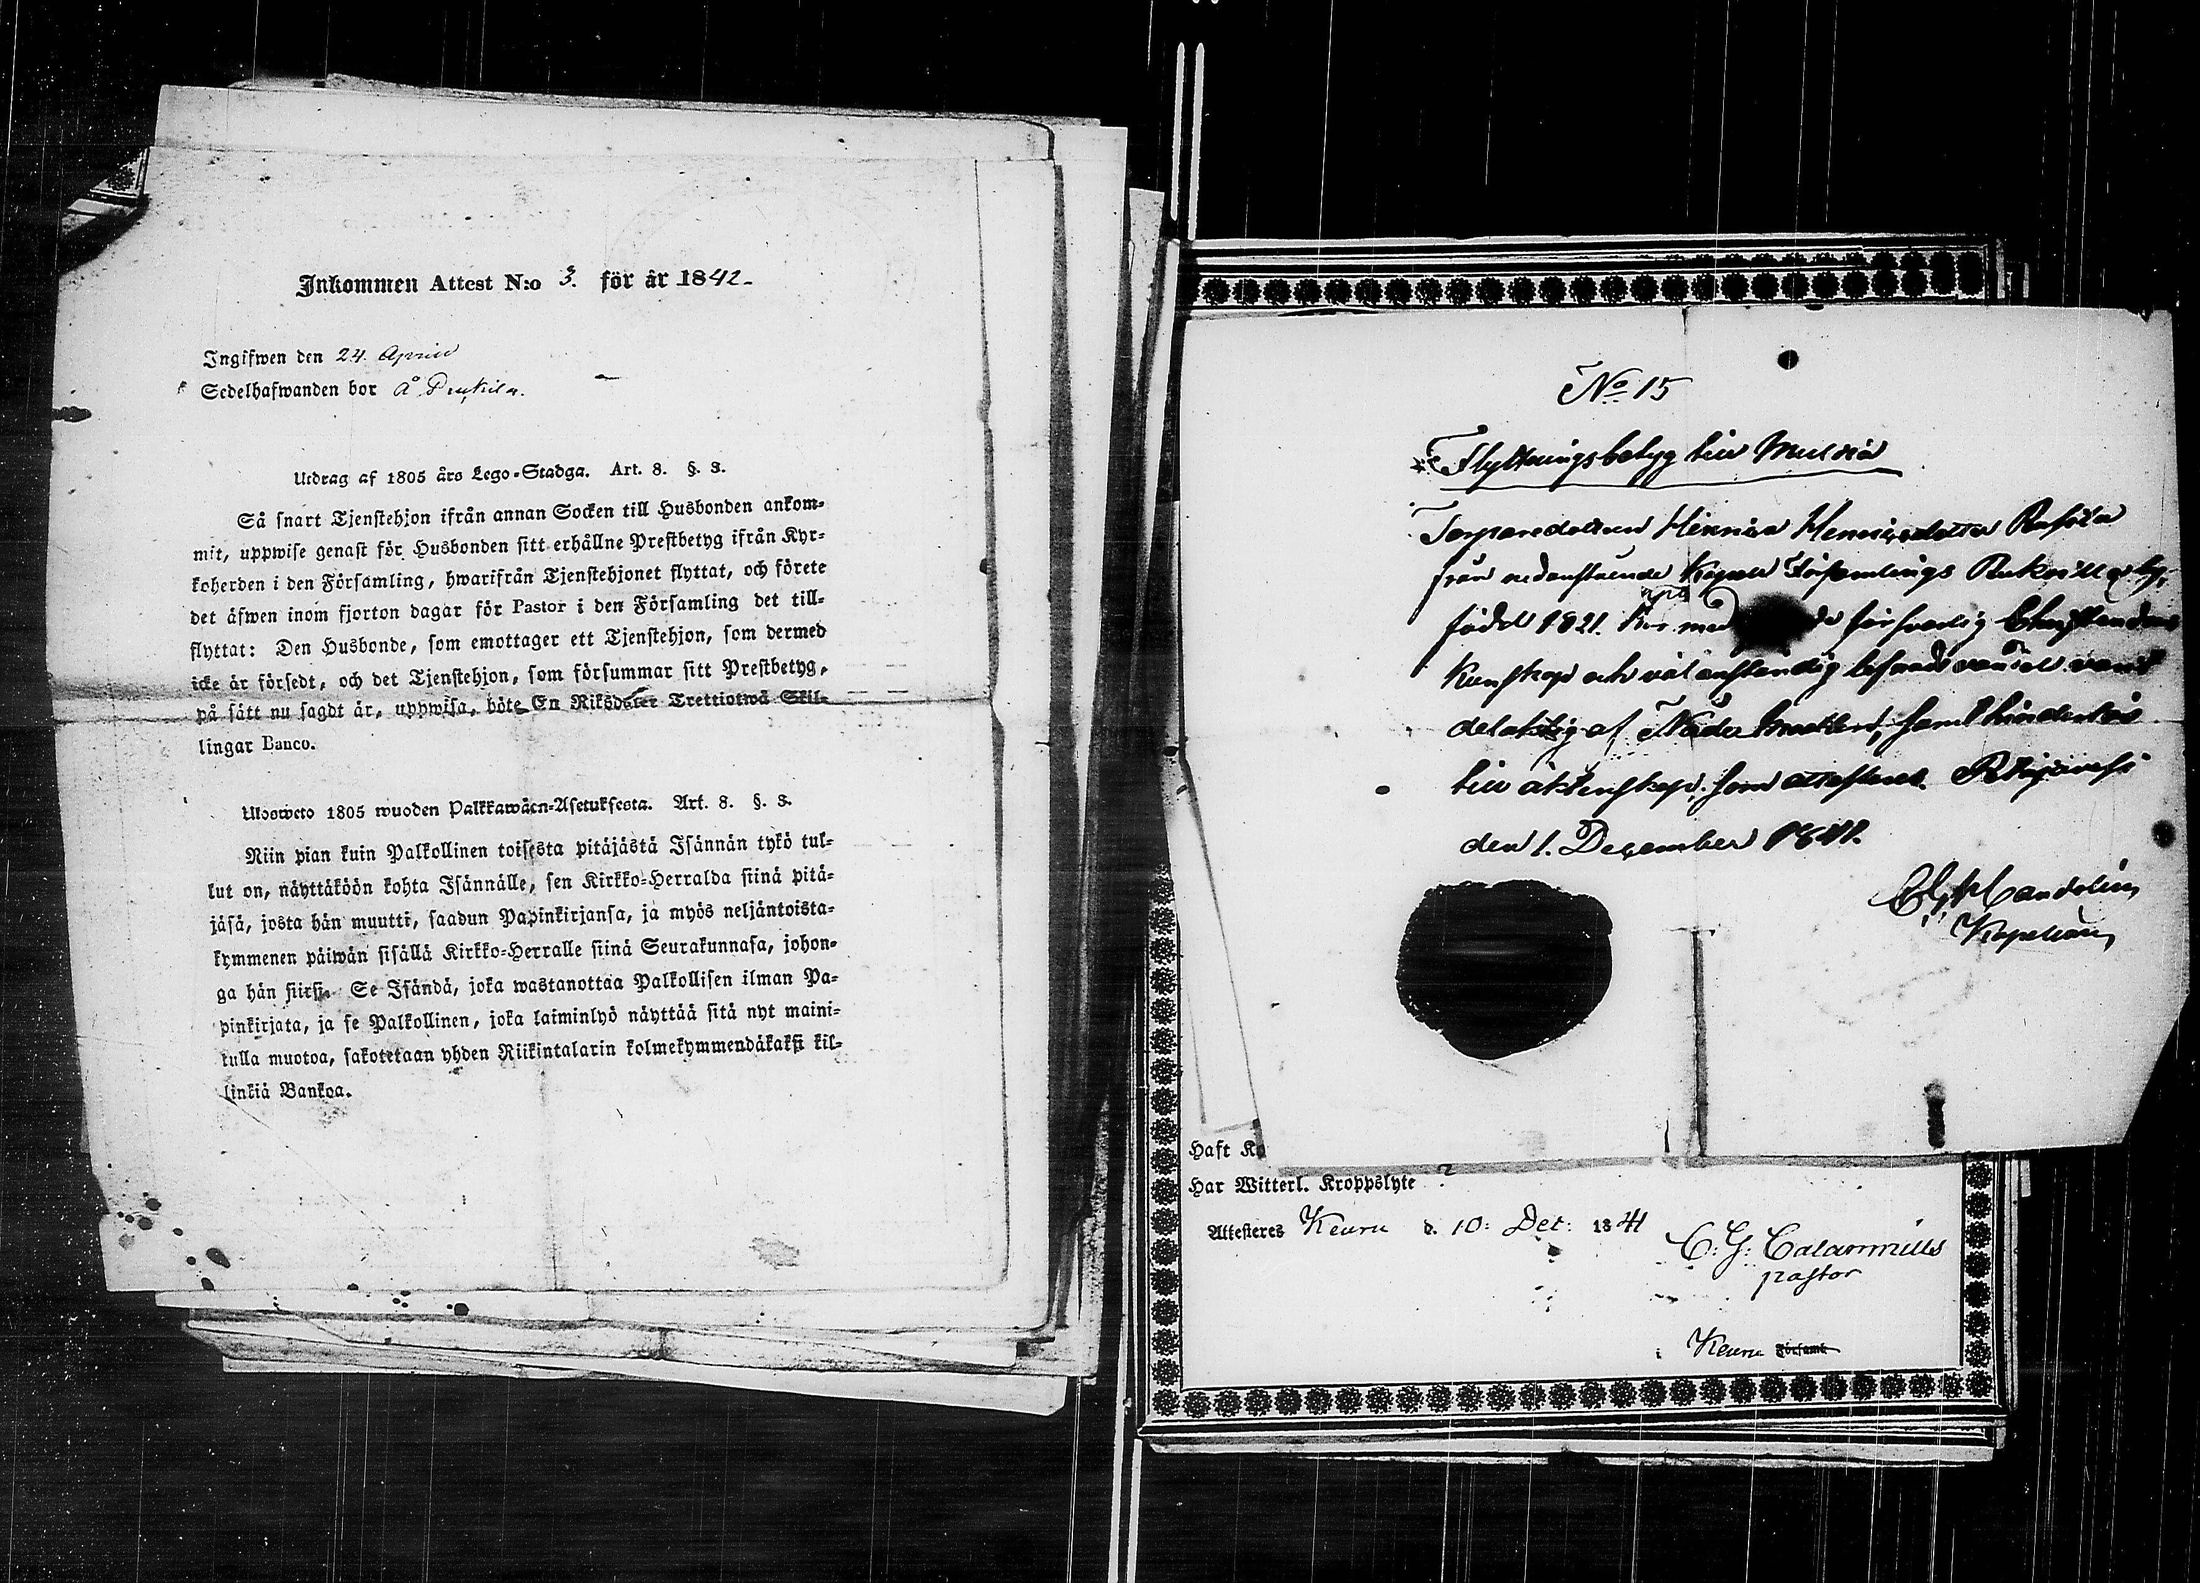 Inkommen Attest N:o 3. för år 1842.
Ingifwen den 24. April
Sedelhafwanden bor å
Utdrag af 1805 års Lego-Stadga. Art. 8. §. 3.
Så snart Tjenstehjon ifrån annan Socken till Husbonden ankom-
mit, uppwise genast för Husbonden sitt erhållne Prestbetyg ifrån Kyr-
koherden i den Församling, hwarifrån Tjenstehjonet flyttat, och förete
det äfwen inom fjorton dagar för Pastor i den Församling det till-
flyttat: Den Husbonde, som emottager ett Tjenstehjon, som dermed
icke är försedt, och det Tjenstehjon, som försummar sitt Prestbetyg,
på sätt nu sagdt är, uppwisa, böte En Riksdaler Trettiotwå Skil-
lingar Banco.
Ulosweto 1805 wuoden Palkkawäen-Asetuksesta. Art. 8. §. 3.
Niin pian kuin Palkollinen toisesta pitäjästä Isännän tykö tul-
lut on, näyttäköön kohta Isännälle, sen Kirkko-Herralda siinä pitä-
jäsä, josta hän muutti, saadun Papinkirjansa, ja myös neljäntoista-
kymmenen päiwän sisällä Kirkko-Herralle siinä Seurakunnasa, johon-
ga hän siirsi. Se Isändä, joka wastanottaa Palkollisen ilman Pa-
pinkirjata, ja se Palkollinen, joka laiminlyö näyttää sitä nyt maini-
tulla muotoa, sakotetaan yhden Riikintalarin kolmekymmendäkaksi kil-
linkiä Bankoa.
No 15
Flyttningsbetyg till Multia
Torparedottren Henrica Henricsdotter
från nedanstående Kapell Församlings
född 1821. med försvarlig Christendoms
Kunskap och välanständig
delaktig af Nådemedlen, samt hinderlös
till äktenskap; som attesteras.
den 1. December 1841.
Kapellan
Haft Ko
Har Witterl. Kroppslyte ?
Attesteres Keuru d. 10: Dec: 1841
C: G: Calamnius
pastor
Keuru Församl.